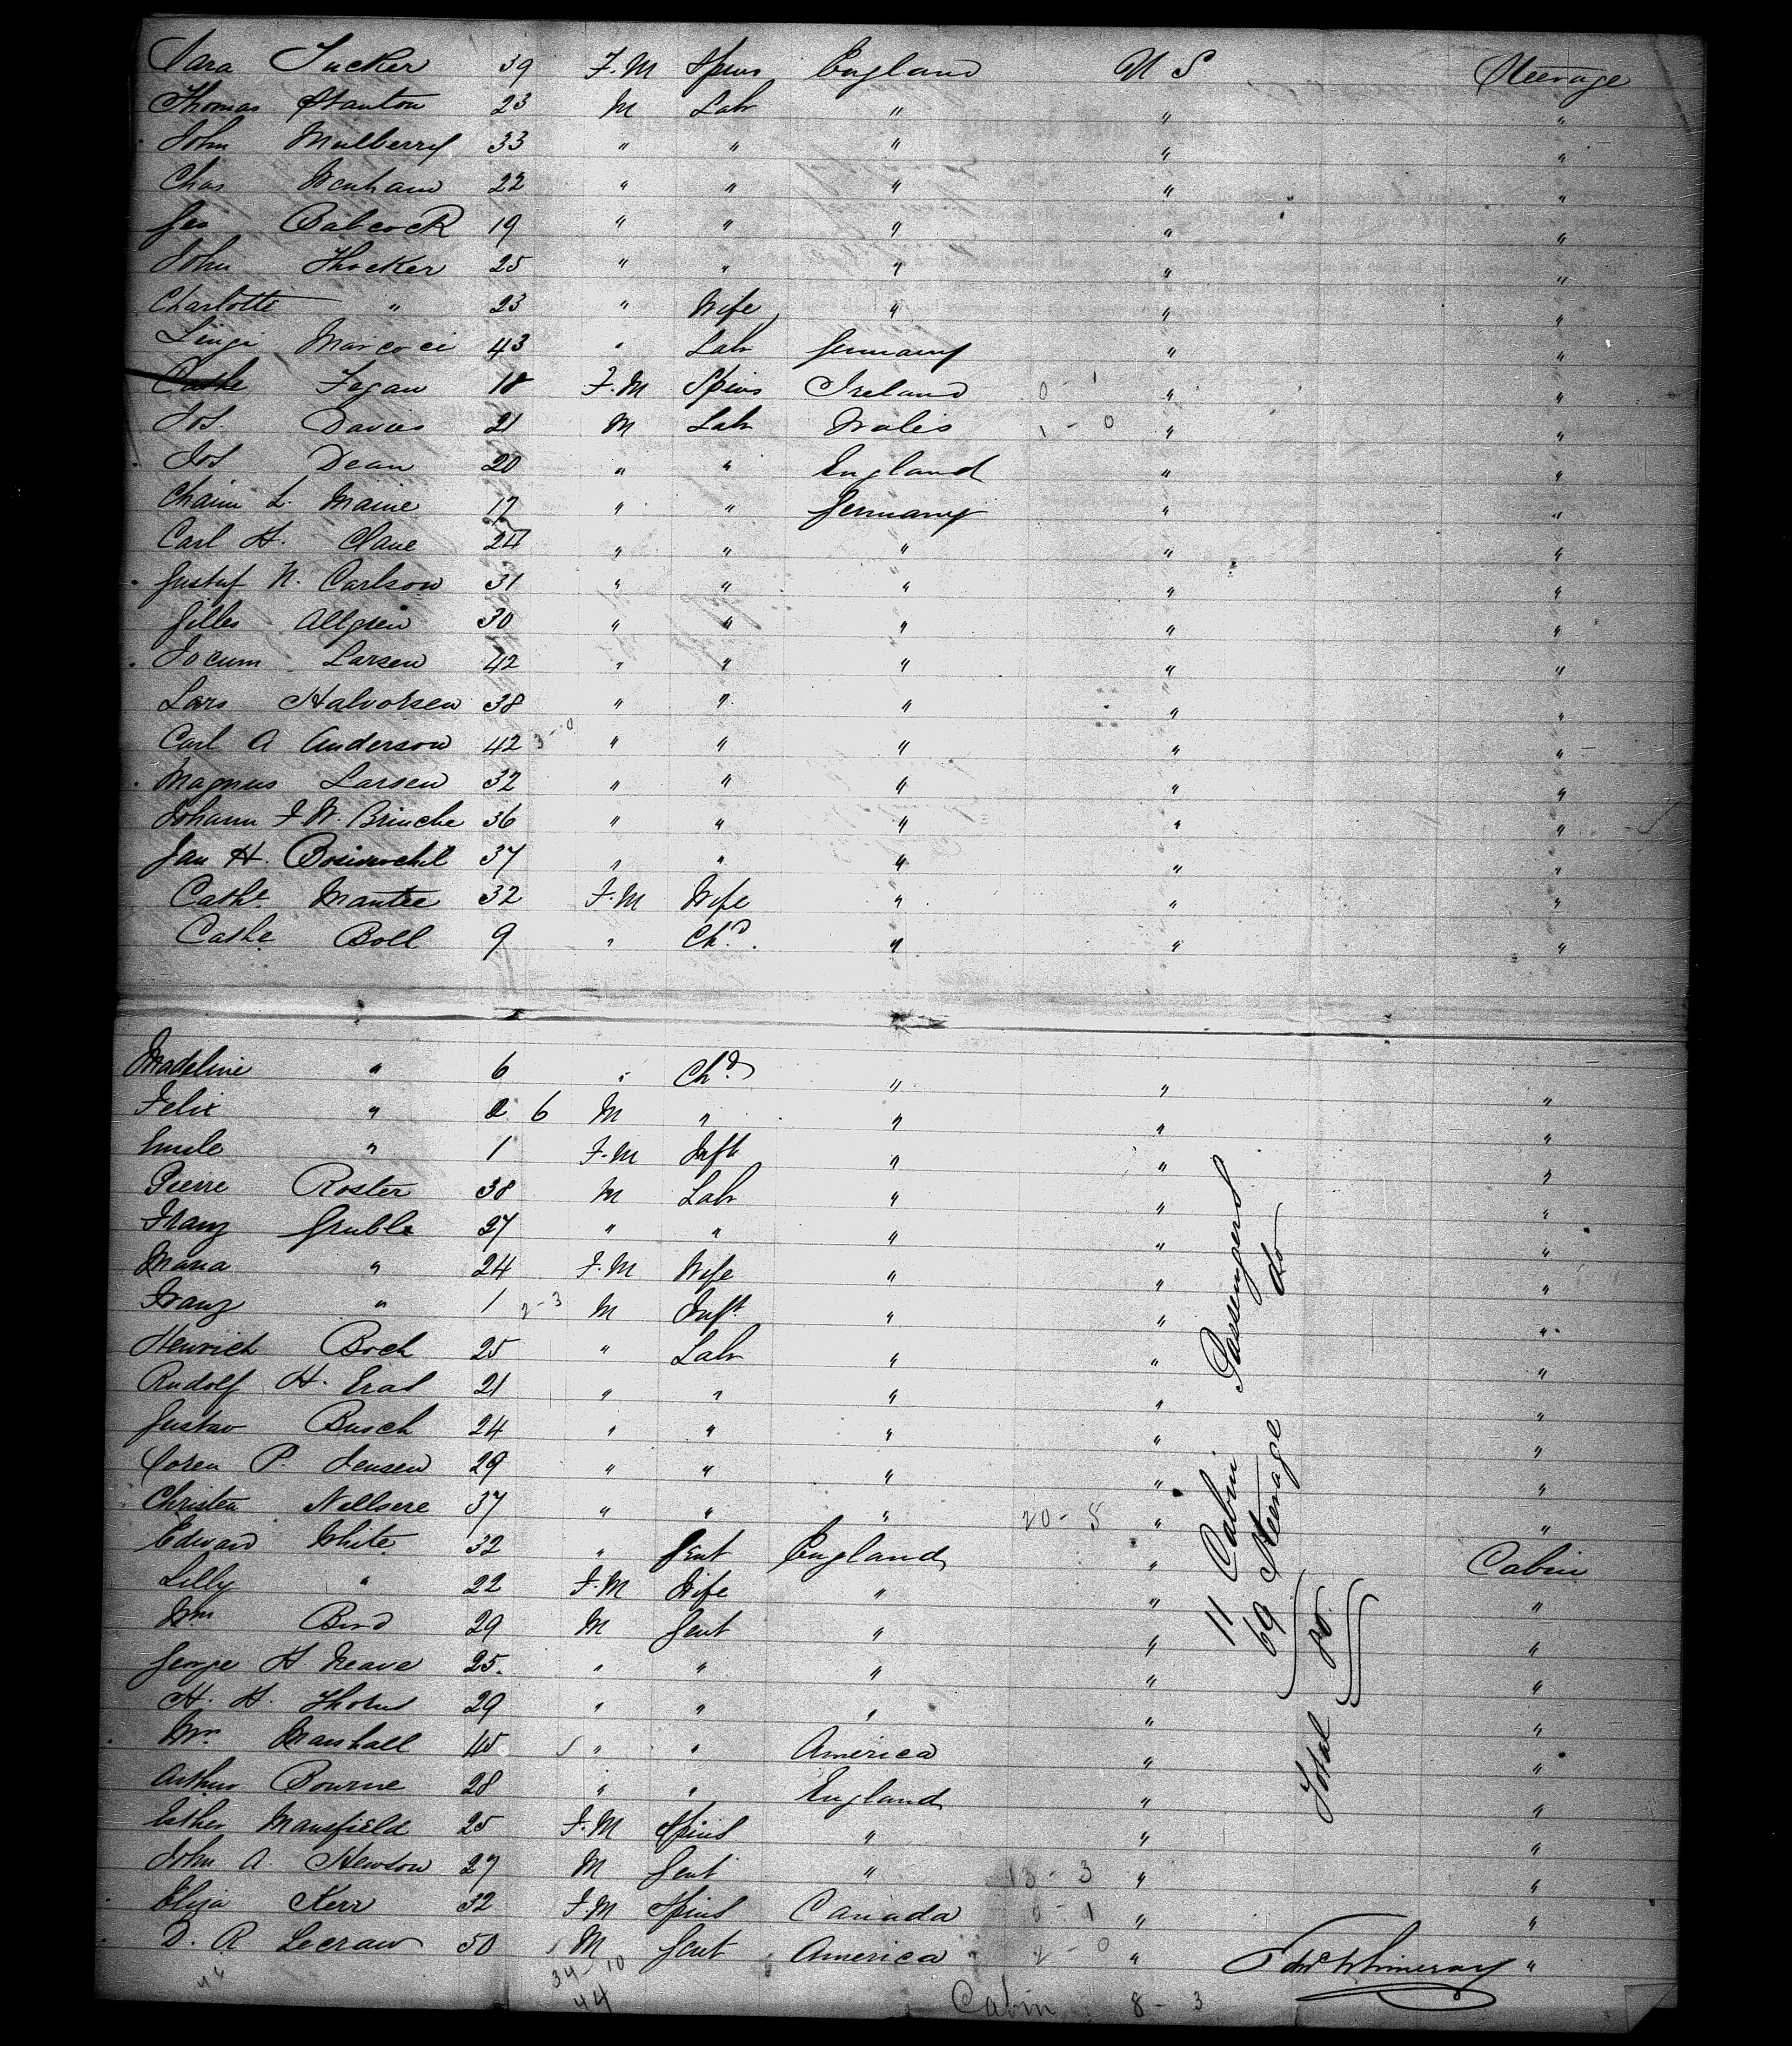 Sara Tucker 39 F.M Spins England U S Steerage
Thomas Stanton 23 M Labr " " "
John Mulberry 33 " " " " "
Chas Wenham 22 " " " " "
Geo Babcock 19 " " " " "
John Thocker 25 " " " " "
Charlotte " 23 " Wife " " "
Luigi Marcoci 43 " Labr Germany " "
Cathe Fegan 18 F.M Spins Ireland 0 - 1 " "
Jos. Davies 21 M Labr Wales 1 - 0 " "
Jos Dean 20 " " England " "
Chaim L. Maine 17 " " Germany " "
Carl H. Claue 24 " " " " "
Gustaf N. Carlson 31 " " " " "
Gilles Allgren 30 " " " " "
Jocum Larsen 42 " " " " "
Lars Halvorsen 38 " " " " "
Carl A Anderson 42 3 - 0 " " " " "
Magnus Larsen 32 " " " " "
Johann F W. Brinche 36 " " " " "
Jan H. 37 " " " " "
Catht Mantee 32 F.M Wife " " "
Cathe Boll 9 " Chd. " " "
Madeline " 6 " Chd " " "
Felix " 2 6 M " " " "
Emile " 1 F.M Inft " " "
Pierre Roster 38 M Labr " " "
Franz Gruble 27 " " " " "
Maria " 24 F.M Wife " " "
Franz " 1 2 - 3 M Inft. " " "
Heinrich Boch 25 " Labr " " "
Rudolf H. Erat 21 " " " " "
Gustav Busch 24 " " " " "
Soren P. Jensen 29 " " " " "
Christen Nellsere 37 " " " 20 - 8 " "
Edward White 32 " Gent England " Cabin
Lilly " 22 F.M Wife " " "
Wm Bird 29 M Gent " " "
George H Neave 25. " " " " "
H. H. 29 " " " " "
Mr. Marshall 45 " " America " "
Arthur Bourne 28 " " England " "
Esther Mansfield 25 F.M Spins " " "
John A. Hewson 27 M Gent " 13 - 3 " "
Eliza Kerr 32 F.M Spins Canada 0 - 1 " "
D. R Lecraw 50 M Gent America 2 - 0 " "
34 - 10
44
Cabin 8 - 3
11 Cabin Passengers
69 Steerage do
Total 80.